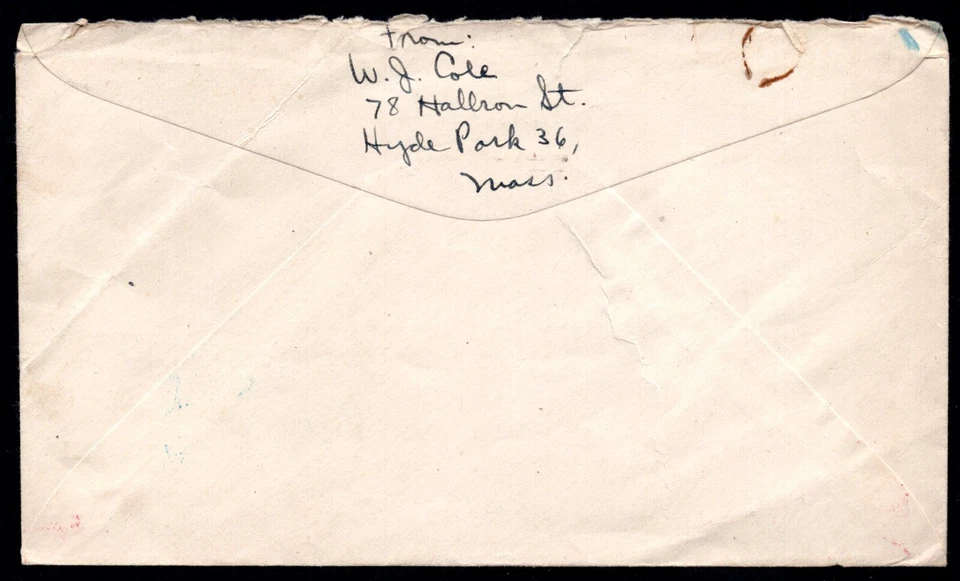 From:
W. J. Cole
78 Hallron St.
Hyde Park 36,
Mass.